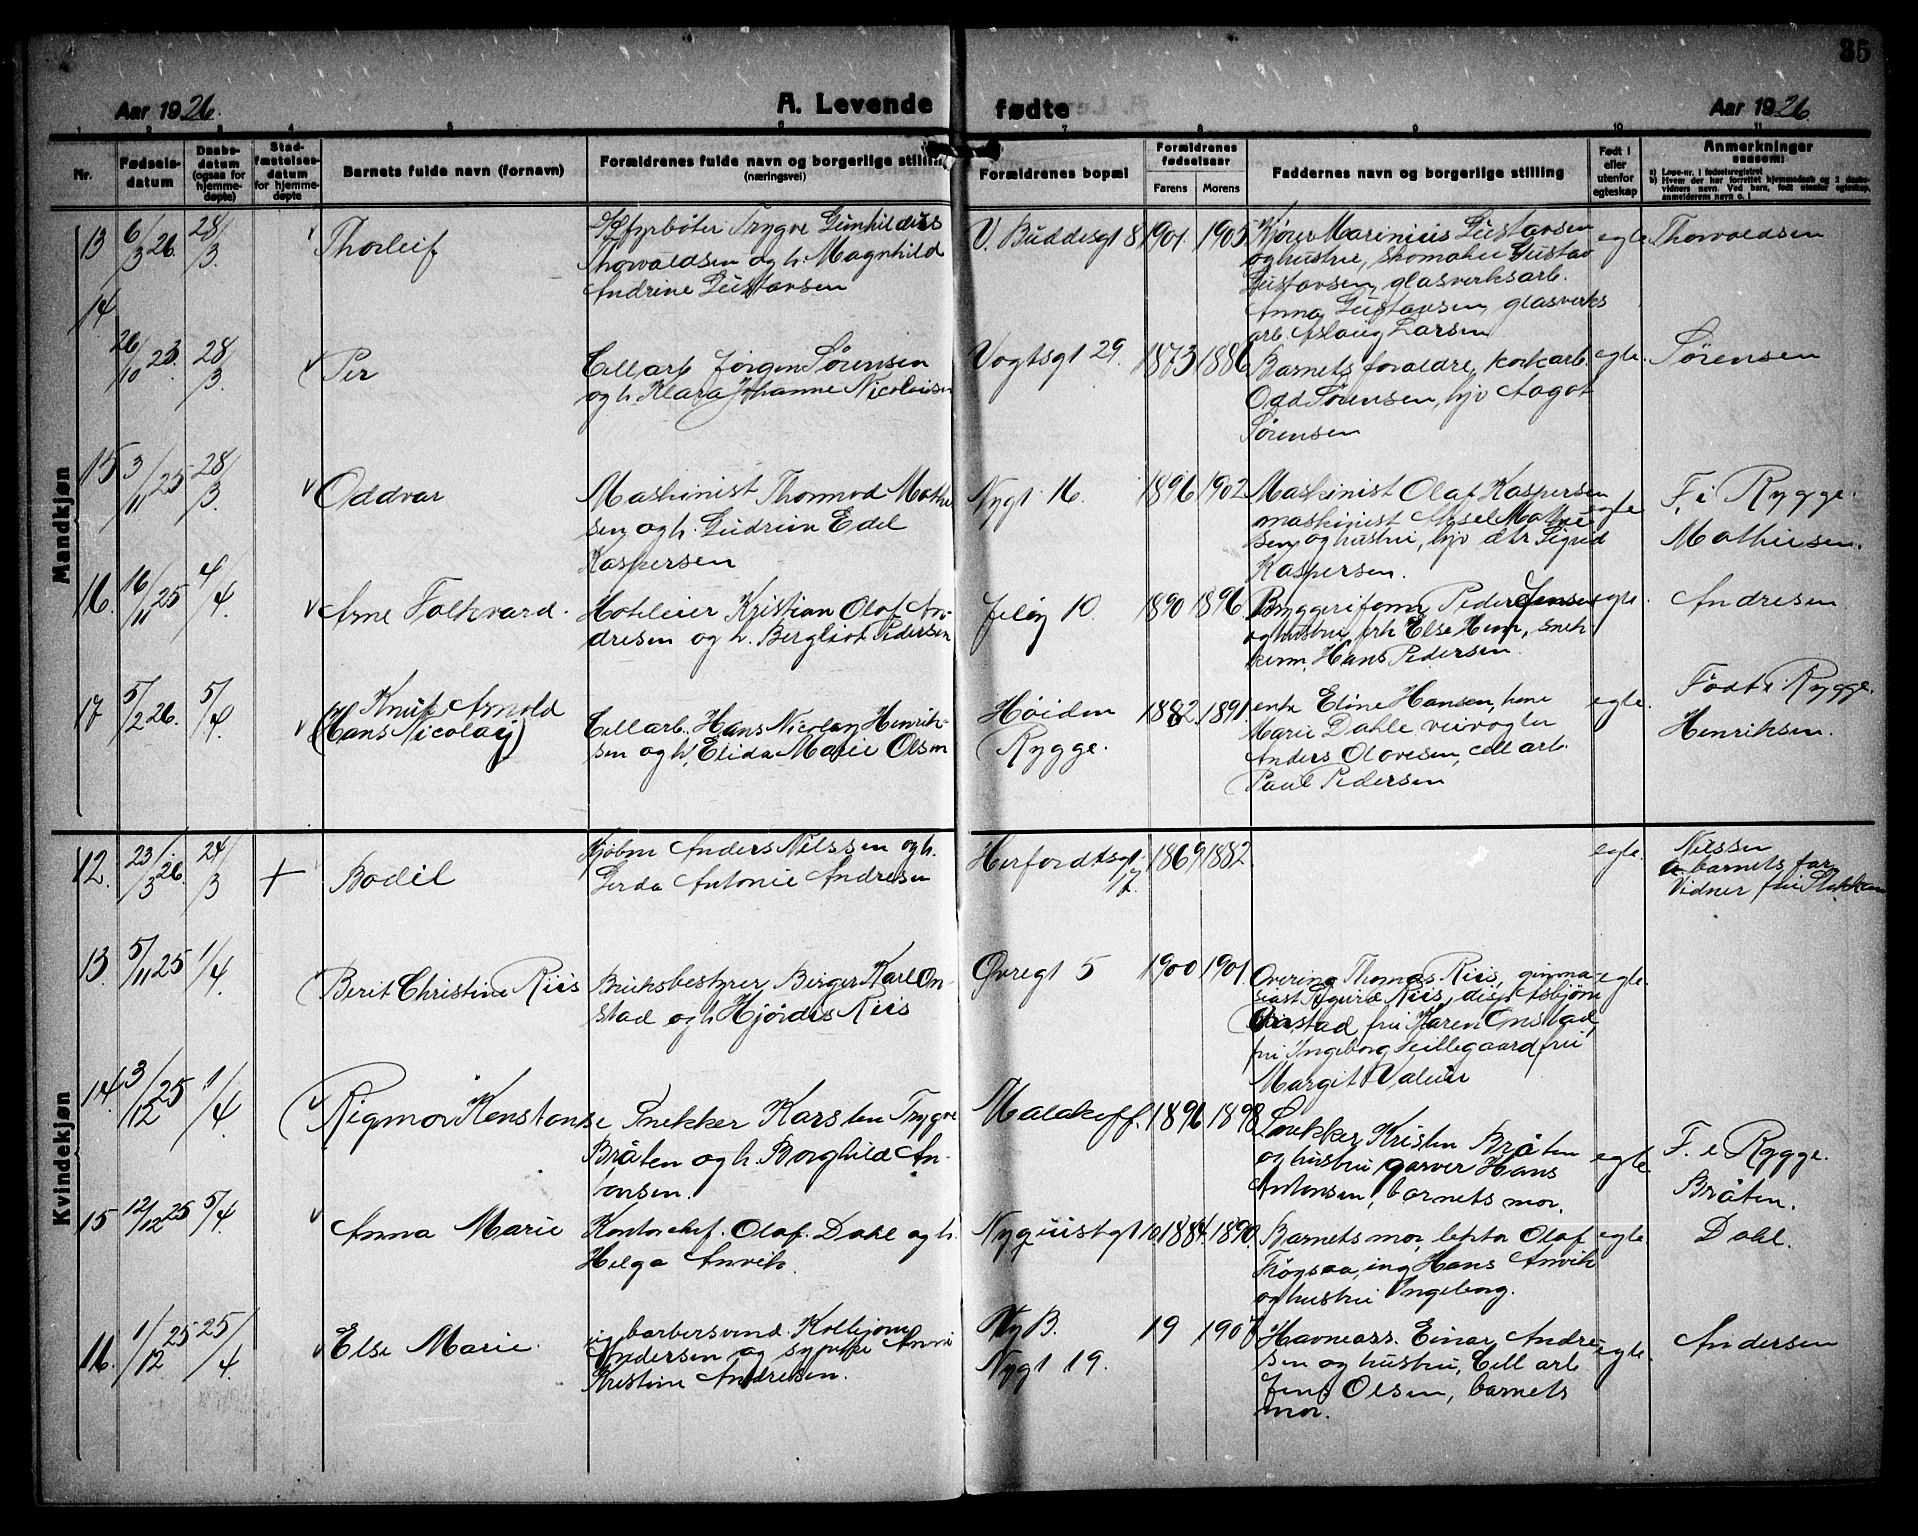 35
Aar 1926.
A. Levende
fødte
Aar 1926
1 2 3 4 5 6 7 8 9 10 11
Nr.
Fødsels-
datum
Daabs-
datum
(ogsaa for
hjemme-
døpte)
Stad-
fæstelses-
datum
for hjemme-
døpte
Barnets fulde navn (fornavn)
Forældrenes fulde navn og borgerlige stilling
(næringsvei)
Forældrenes bopæl
Forældrenes
fødselsaar
Farens
Morens
Faddernes navn og borgerlige stilling
Født i
eller
utenfor
egteskap
Anmerkninger
saasom:
a) Løpe-nr. i fødselsregistret
b) Hvem der har forrettet hjemmedaab og 2 daabs-
vidners navn. Ved barn, født utenfor egteskap,
anmelderens navn o. l.
Mandkjøn
13 6/3 26. 28/3 Thorleif
fyrbøter Trygve Gunhildius
Thorvaldsen og h. Magnhild
Andrine Gustavsen
V. Buddesgt 8 1901. 1905
Kjører Marinius Gustavsen
og hustru, skomaker Gustav
Gustavsen, glasverksarb.
Anna Gustavsen, glasverks
arb. Aslaug Larsen
egte. Thorvaldsen
14 26/10 23. 28/3 Per
Cellarb Jørgen Sørensen
og h. Klara Johanne Nicolaisen
Vogtsgt 29. 1873 1886
Barnets forældre, korkarb.
Odd Sørensen, hjv Aagot
Sørensen
egte. Sørensen
15 3/11 25 28/3 Oddvar
Maskinist Thormod Mathi
sen og h. Gudrun Edel
Kaspersen
Nygt 16. 1896 1902
Maskinist Olaf Kaspersen
maskinist Aksel Mathi
sen og hustru, hjv dtr Sigrid
Kaspersen.
egte F. i Rygge.
Mathisen.
16. 16/11 25 4/4 Arne Folkvard.
Hotleier Kristian Olaf An-
dresen og h. Bergliot Pedersen
Jeløy 10. 1890 1896
Byggerifom. Peder Jensen
og hustru, frk Else Hem, snek
kerm. Hans Pedersen.
egte. Andresen
17 5/2 26. 5/4 Knut Arnold
(Hans Nicolay)
Cellarb. Hans Nicolay Henrik-
sen og h. Elida Marie Olsen
Høiden
Rygge. 1882. 1891.
enke Eline Hansen, hene
Marie Dahle veivogter
Anders Olavesen, cell arb.
Paul Pedersen
egte. Født i Rygge.
Henriksen.
Kvindekjøn
12. 23/3 26. 24/3 + Bodil
Kjøbm Anders Nilssen og h.
Gerda Antonie Andresen
Herfordtsgt
7. 1869 1882
egte. Nilssen
barnets far
Vidner fru
13. 5/11 25 1/4 Berit Christine Riis
Bruksbestyrer Birger Karl On-
stad og h Hjørdis Riis
Øvregt 5 1900 1901.
Overing Thomas Riis, gimna
siast Sigurd Riis, disp Asbjørn
Onstad, fru Karen Onstad,
fru Ingeborg Hillegaard fru
Margit Valeur
egte.
14. 3/12 25 1/4 Rigmor Konstanse
Snekker Karsten Trygve
Bråten og h. Borghild An-
tonsen.
Malakoff. 1896 1898
Snekker Kristen Bråten
og hustru garver Hans
Antonsen, barnets mor.
egte F. i Rygge.
Bråten.
15 12/12 25 5/4 Anna Marie
Kontorchef. Olaf Dahl og h.
Helga Anvik.
Nyquistgt 10 1884. 1890.
Barnets mor, lektor Olaf
Frøysaa, ing Hans Anvik
og hustru Ingeborg.
egte Dahl.
16. 1/12 25 25/4 Else Marie.
ug barbersvend. Kolbjørn
Andersen og sypike Anna
Kristine Andresen.
Ny B.
Nygt 19. 19 1907
Havneass. Einar Andre
sen og hustru, Cell arb.
Jens Olsen, barnets
mor.
egte. Andersen